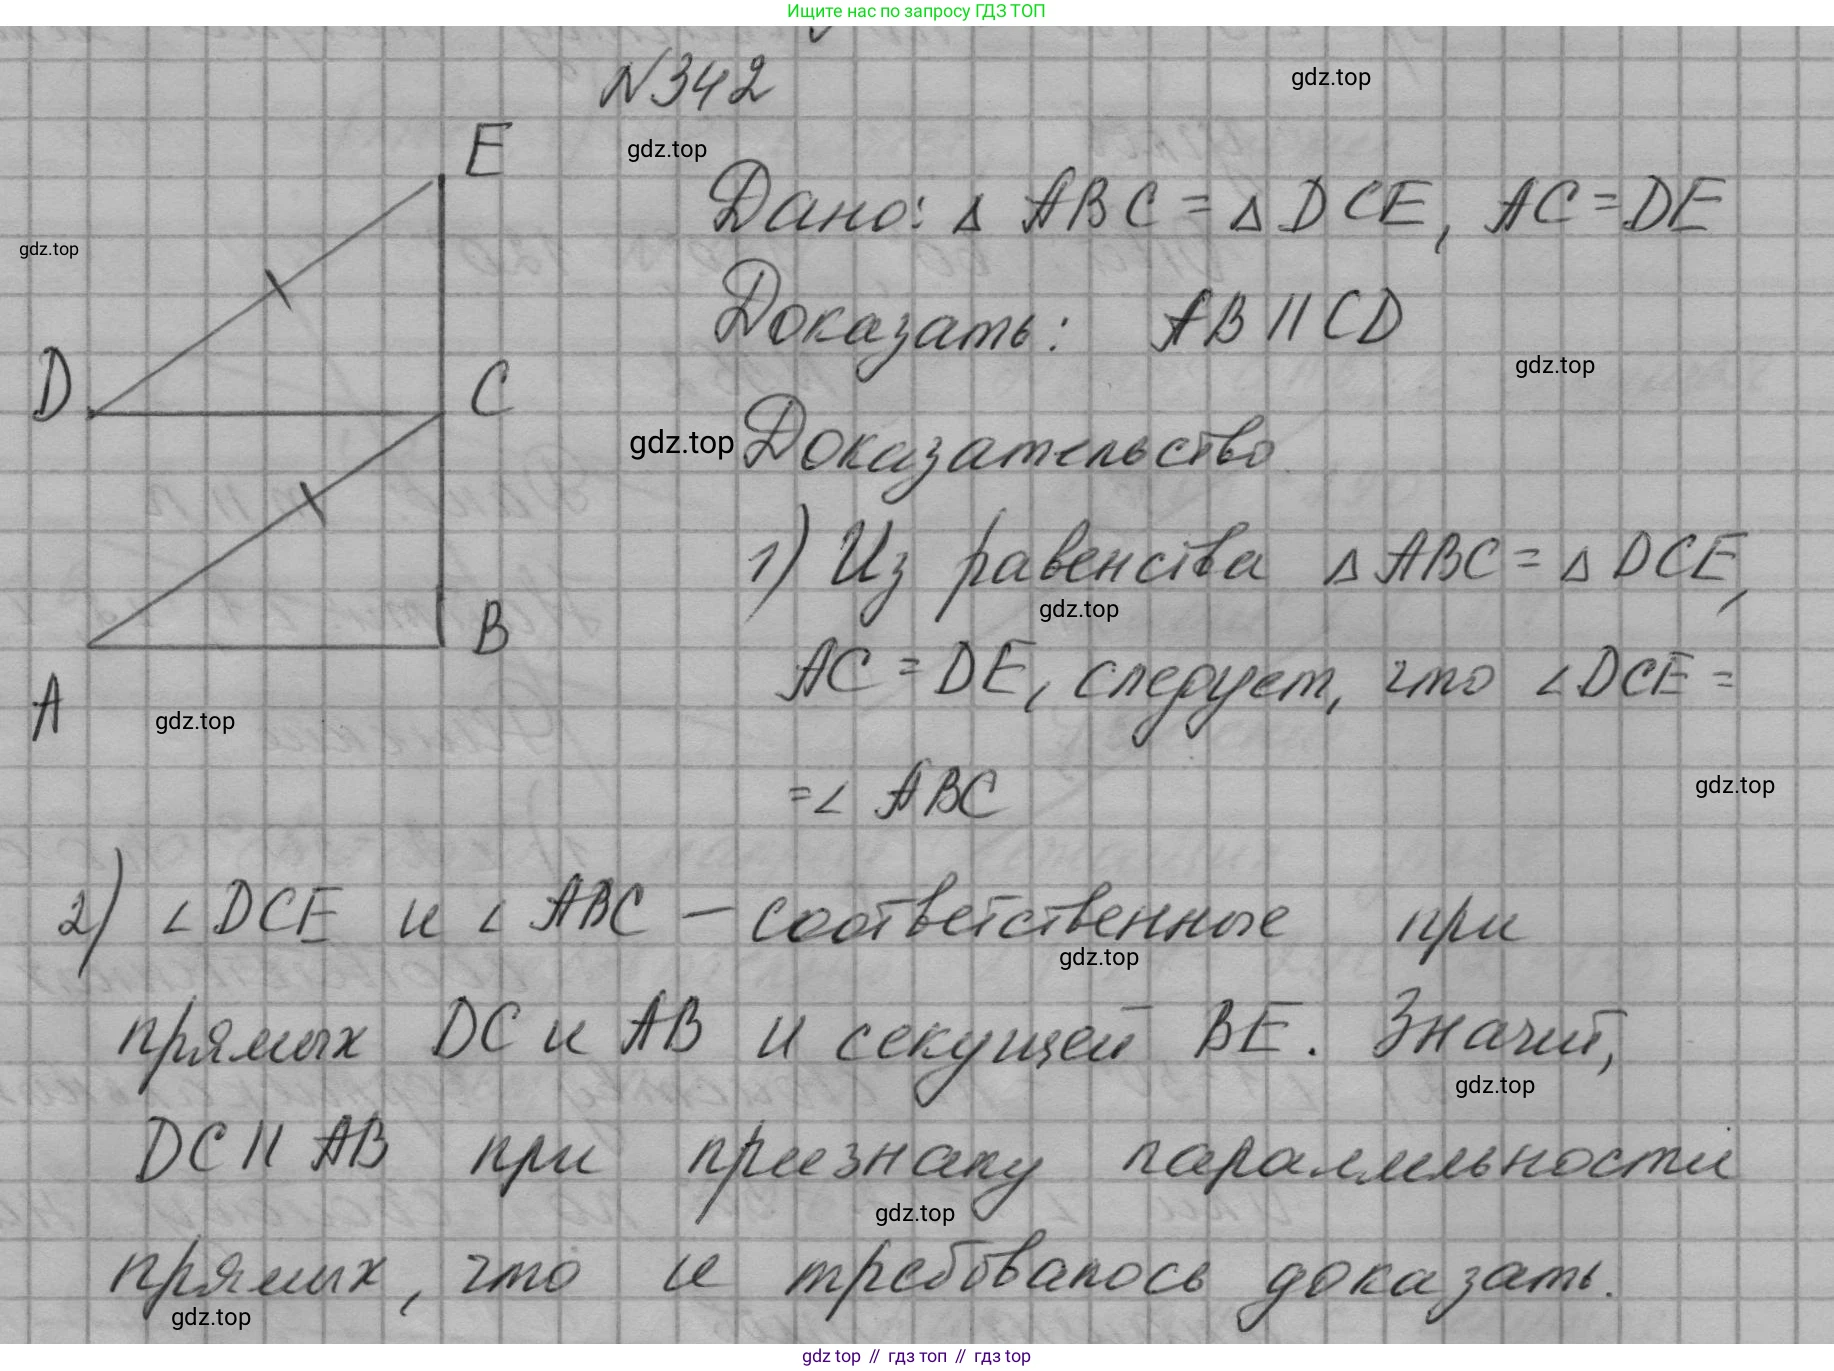 Ищите нас по запросу ГДЗ ТОП
N342
gdz.top
gdz.top
E
Дано: Δ ABC = Δ DCE, AC = DE
gdz.top
Доказать: AB || CD
gdz.top
D
C
gdz.top
Доказательство.
1) Из равенства Δ ABC = Δ DCE,
gdz.top
B
AC = DE, следует, что ∠DCE =
A
gdz.top
= ∠ ABC
gdz.top
2) ∠DCE и ∠ABC – соответственные при
gdz.top
прямых DC и AB и секущей BE. Значит,
gdz.top
DC || AB при признаку параллельности
gdz.top
прямых, что и требовалось доказать.
gdz.top
gdz top // гдз топ // гдз top